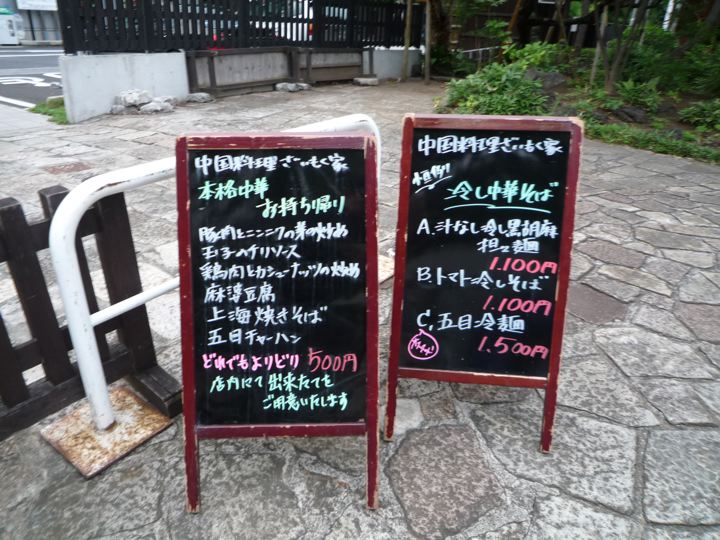 中国料理ざいもく家
本格中華
お持ち帰り
豚肉とニンニクの芽の炒め
玉子のチリソース
鶏肉とカシューナッツの炒め
麻婆豆腐
上海焼きそば
五目チャーハン
どれでもよりどり 500円
店内にて出来たてを
ご用意いたします
中国料理ざいもく家
冷し中華そば
A. 汁なし冷し黒胡麻
担々麺
1.100円
B. トマト冷しそば
1.100円
C. 五目冷麺
1.500円